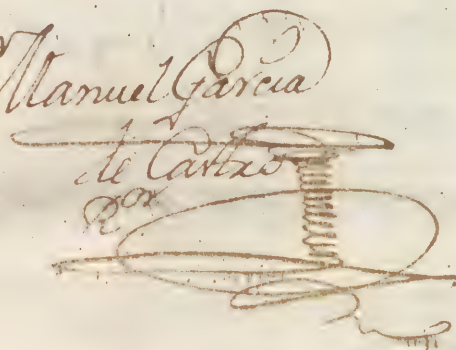 Manuel Garcia
de Castro
R.or